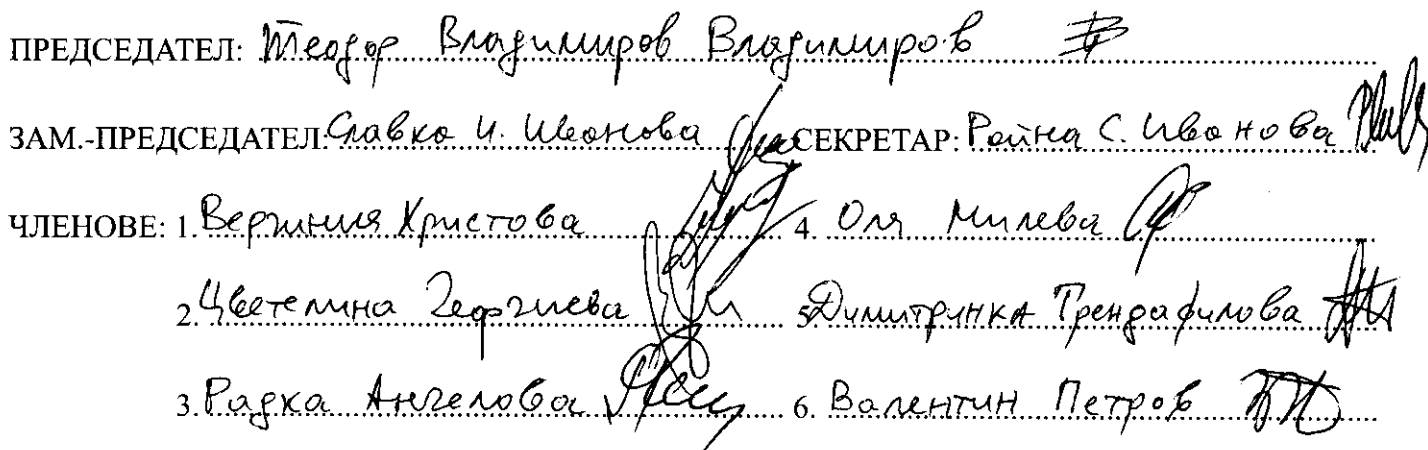 ПРЕДСЕДАТЕЛ: Теодор Владимиров Владимиров
ЗАМ.-ПРЕДСЕДАТЕЛ: Славка И. Иванова СЕКРЕТАР: Райна С. Иванова
ЧЛЕНОВЕ: 1. Вергиния Христова 4. Оля Милева
2. Цветелина Георгиева 5. Димитринка Трендафилова
3. Радка Ангелова 6. Валентин Петров